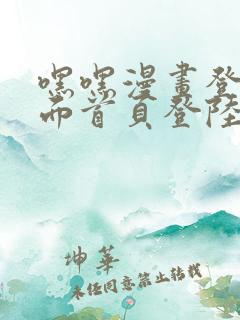 嘿嘿漫畫登
而首頁登陸
坤華
未經同意禁止轉載